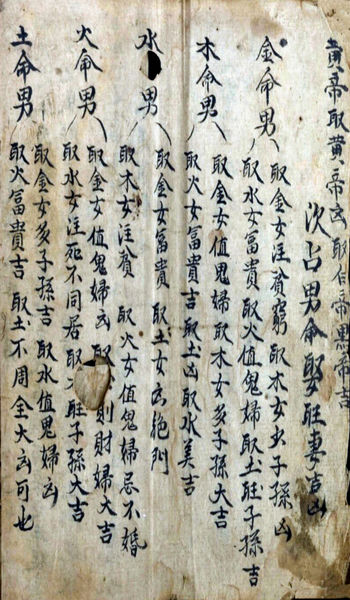 黄帝取黄帝凶取白帝黑帝吉
次占男命娶旺妻吉凶
金命男
取金女注貧窮取木女少子孫凶
取水女富貴取火值鬼婦取土旺子孫吉
木命男
取金女值鬼婦取木女多子孫大吉
取火女富貴吉取土凶取水美吉
水 男
取金女富貴取土女凶絶
取木女注貧取火女值鬼婦忌不婚
火命男
取金女值鬼婦凶取 則財婦大吉
取水女注死不同居取 旺子孫大吉
土命男
取金女多子孫吉取水值鬼婦凶
取火富貴吉取土不周全大凶可也